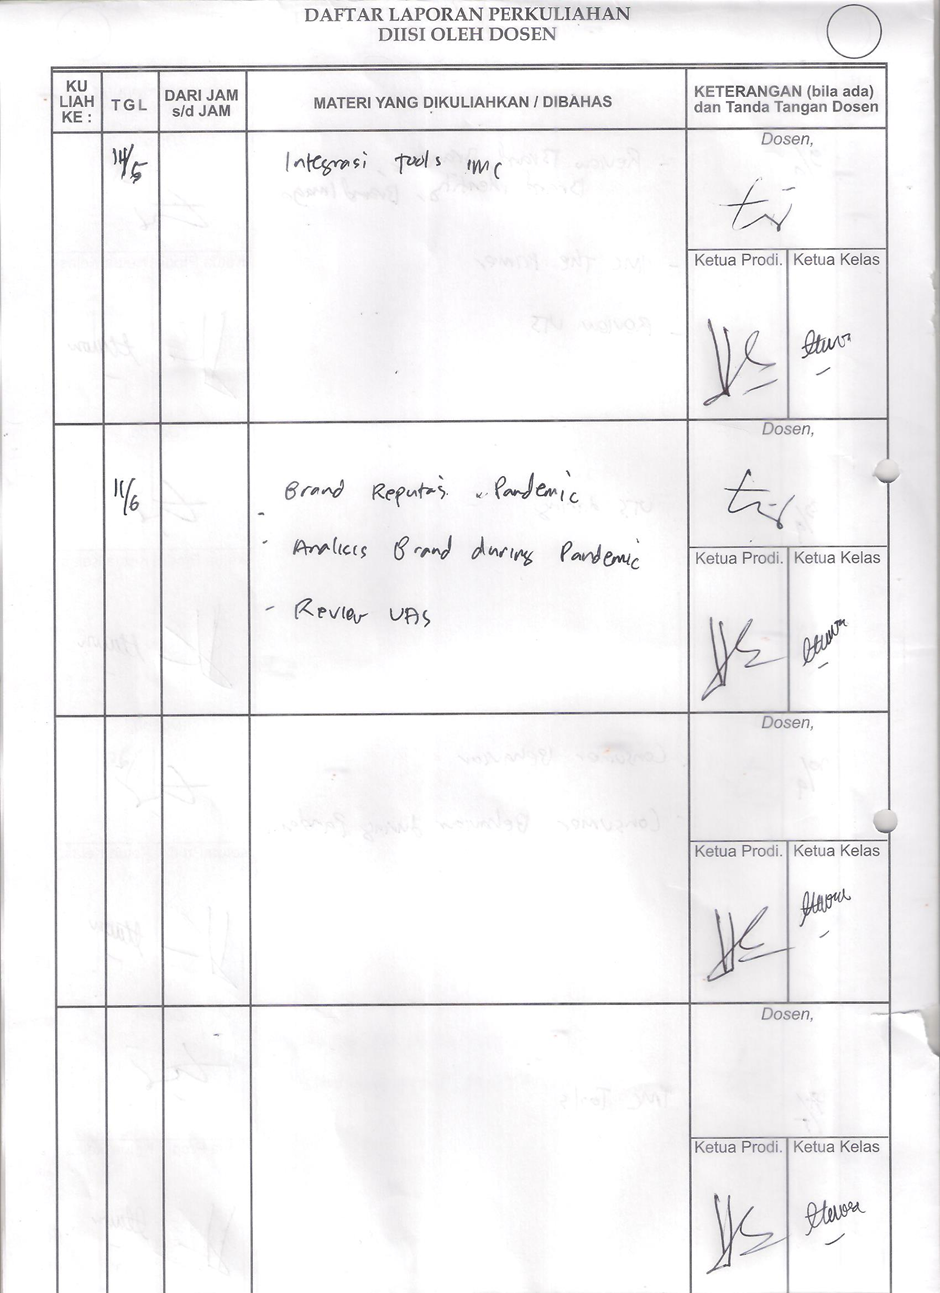 DAFTAR LAPORAN PERKULIAHAN
DIISI OLEH DOSEN
KU
LIAH
KE :
TGL
DARI JAM
s/d JAM
MATERI YANG DIKULIAHKAN / DIBAHAS
KETERANGAN (bila ada)
dan Tanda Tangan Dosen
14/5
Integrasi tools IMC
Dosen,
Ketua Prodi.
Ketua Kelas
Dosen,
11/6
Brand Reputasi Pandemic
- Analisis Brand during Pandemic
- Review UAS
Ketua Prodi.
Ketua Kelas
Dosen,
Ketua Prodi.
Ketua Kelas
Dosen,
Ketua Prodi.
Ketua Kelas